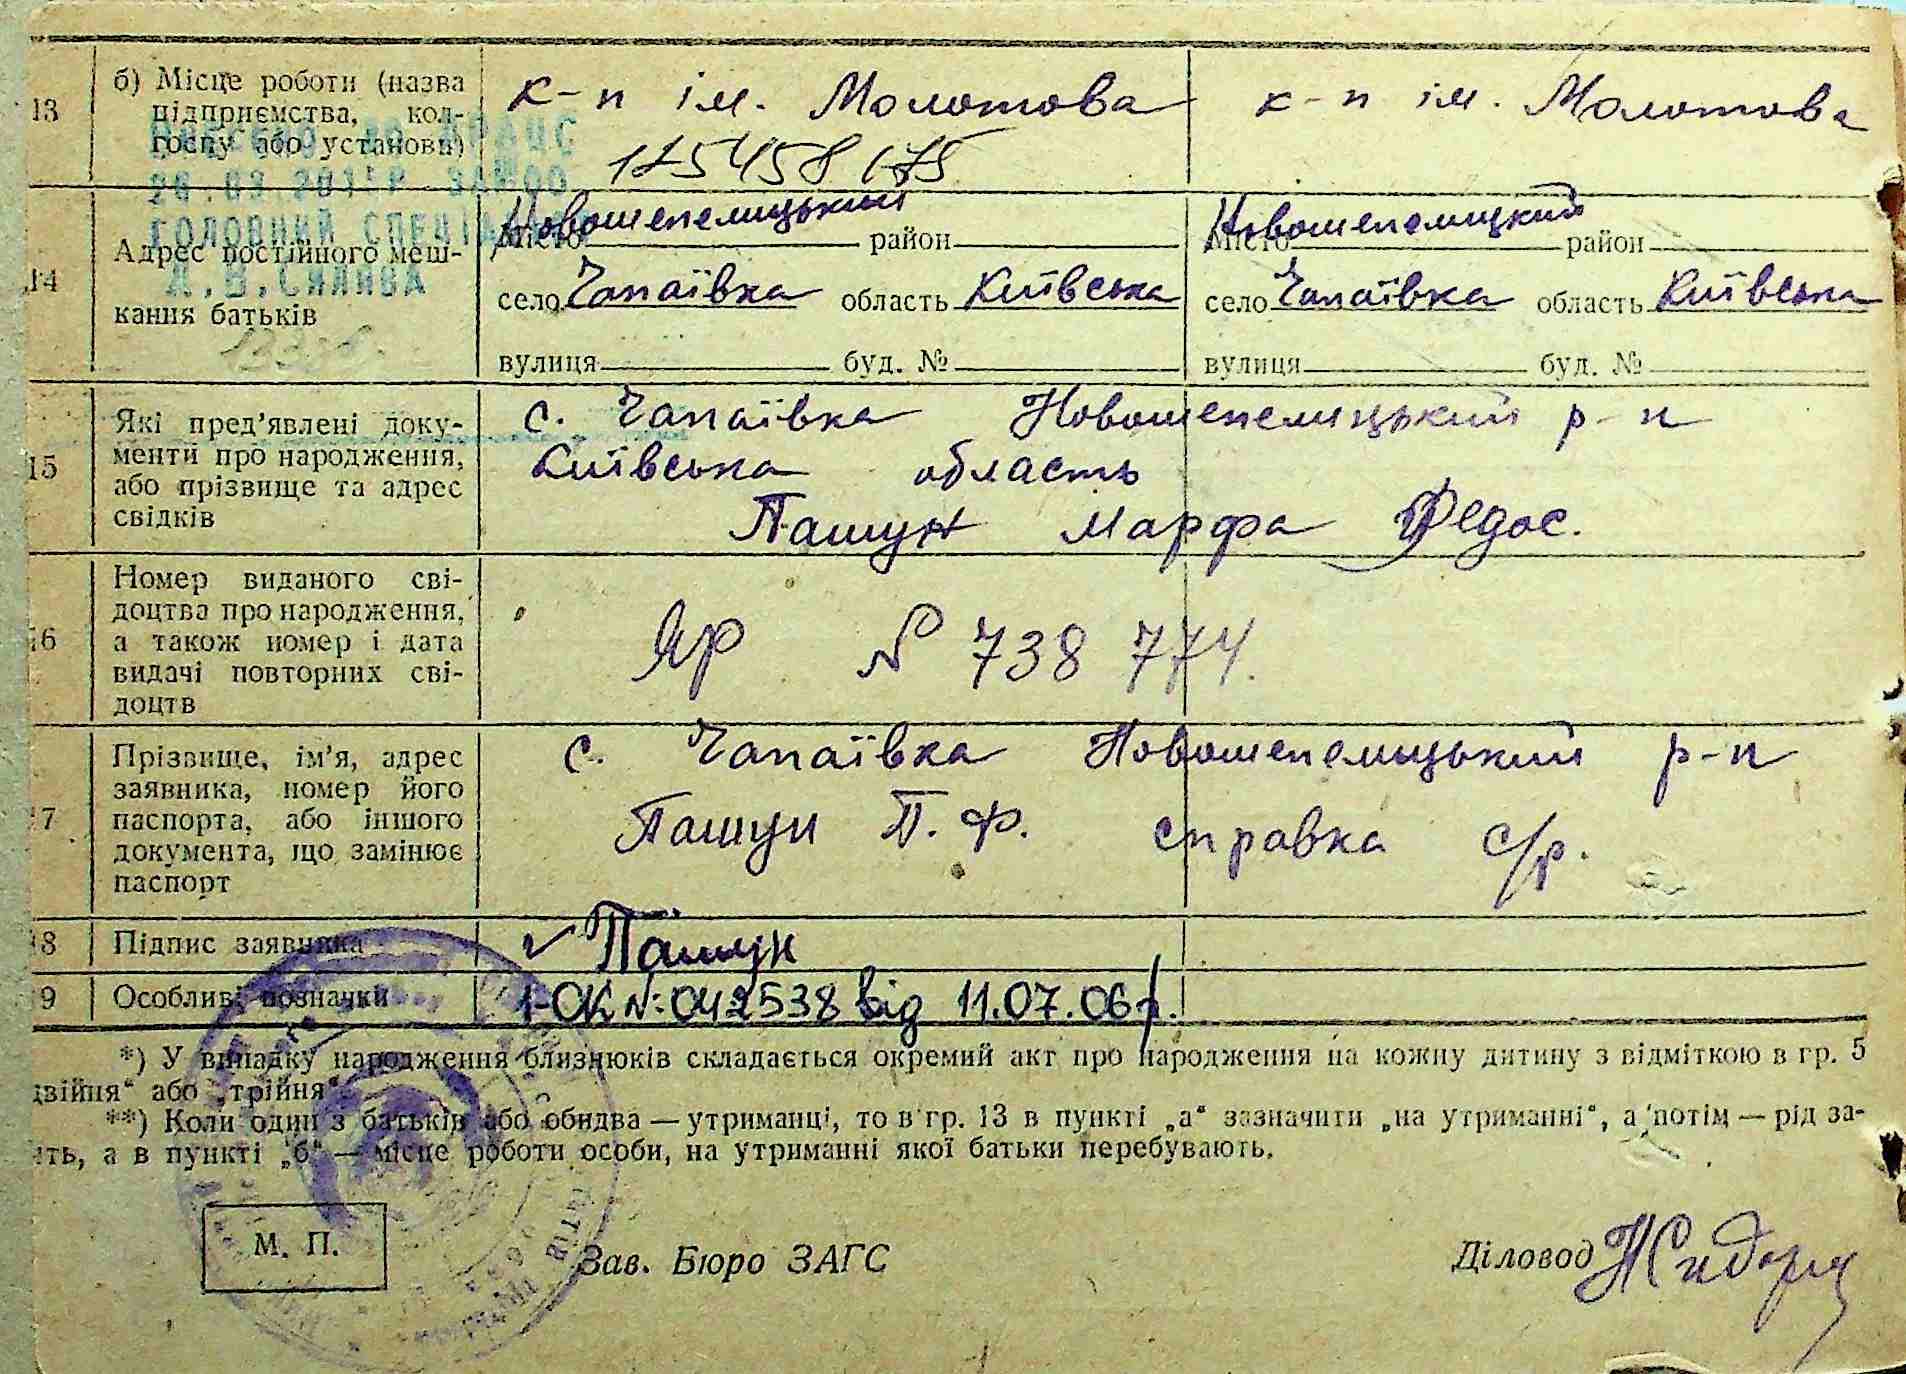 13
б) Місце роботи (назва
підприємства, кол-
госпу або установи)
к-п ім. Молотова
к-п ім. Молотова
125458175
26.03.201 Р
ГОЛОВНИЙ СПЕЦІАЛ
14
Адрес постійного меш-
кання батьків
Новошепелицький
місто район
село Чапаївка область Київська
вулиця буд. №
Новошепелицкий
місто район
село Чапаївка область Київська
вулиця буд. №
15
Які пред'явлені доку-
менти про народження,
або прізвище та адрес
свідків
с. Чапаївка Новошепелицький р-н
Київська область
Пашун Марфа Федос.
16
Номер виданого сві-
доцтва про народження,
а також номер і дата
видачі повторних сві-
доцтв
ЯР № 738774.
17
Прізвище, ім'я, адрес
заявника, номер його
паспорта, або іншого
документа, що замінює
паспорт
с. Чапаївка Новошепелицький р-н
Пашун П. Ф. справка с/р.
18
Підпис заявника
Пашун
19
Особливі позначки
1-ОК №:042538 від 11.07.06р.
*) У випадку народження близнюків складається окремий акт про народження на кожну дитину з відміткою в гр. 5
двійня“ або „трійня“.
**) Коли один з батьків або обидва — утриманці, то в гр. 13 в пункті „а“ зазначити „на утриманні“, а потім — рід за-
ять, а в пункті „б“ — місце роботи особи, на утриманні якої батьки перебувають.
М. П.
Зав. Бюро ЗАГС
Діловод